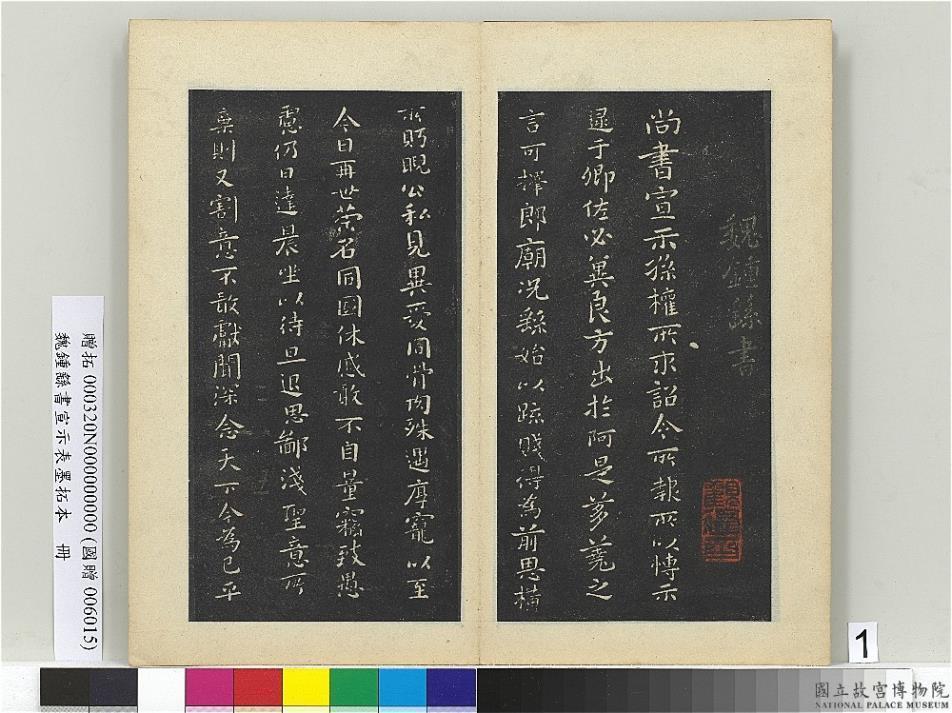 魏鍾繇書
尚書宣示孫權所求詔令所報所以博示
逮于卿佐必冀良方出於阿是芻蕘之
言可擇郎廟況繇始以疏賤得為前恩橫
所眄睨公私見異愛同骨肉殊遇厚寵以至
今日再世榮名同國休慼敢不自量竊致愚
慮仍日達晨坐以待旦退思鄙淺聖意所
棄則又割意不敢獻聞深念天下今為已平
贈拓 000320N000000000 (國贈 006015)
魏鍾繇書宣示表墨拓本 冊
1
國立故宮博物院
NATIONAL PALACE MUSEUM